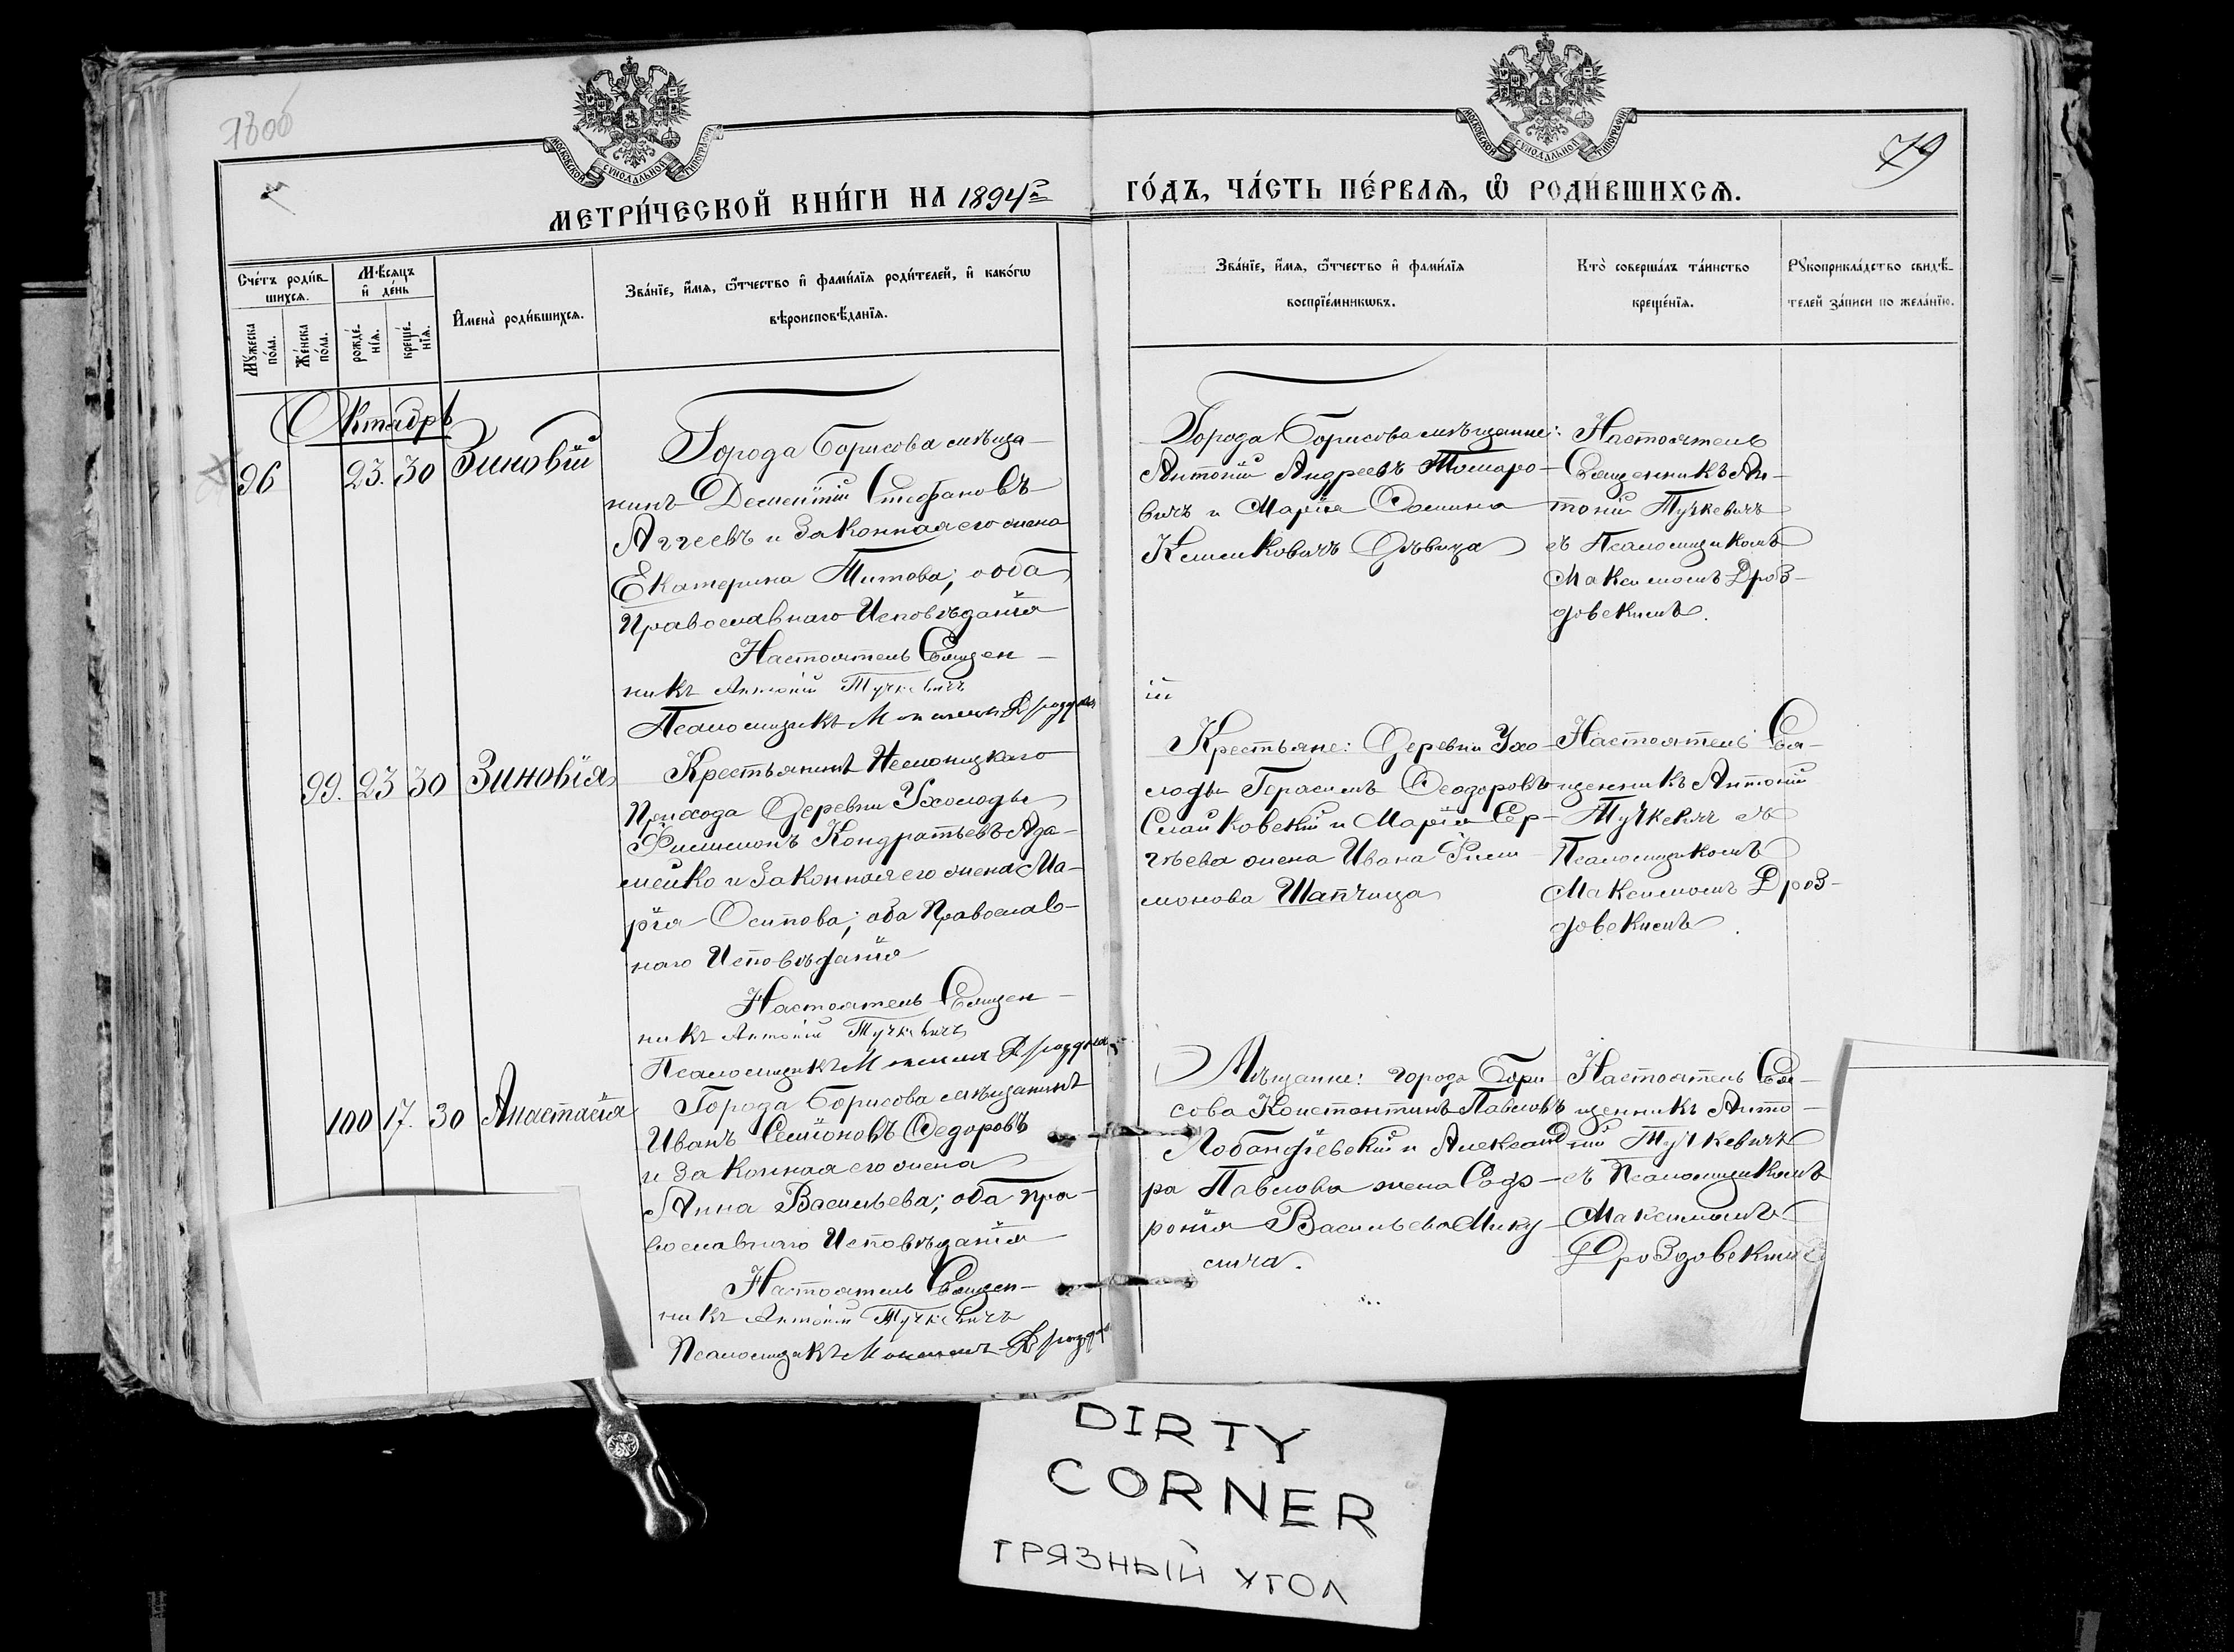 78об
79
МОСКОВСКОЙ СУНОДАЛЬНОЙ ТИПОГРАФІИ
МОСКОВСКОЙ СУНОДАЛЬНОЙ ТИПОГРАФІИ
МЕТРИ́ЧЕСКОЙ КНИ́ГИ НА 1894й ГО́ДЪ, ЧА́СТЬ ПЕ́РВАѦ, Ѡ҆ РОДИ́ВШИХСѦ.
Сче́тъ роди́в-
шихсѧ.
Мꙋ́жеска по́ла.
Же́нска по́ла.
Мѣ́сѧцъ и҆ де́нь
рожде́-нїѧ.
креще́-нїѧ.
И҆мена̀ роди́вшихсѧ.
Зва́нїе, и҆́мѧ, ѻ҆́тчество и҆ фами́лїѧ роди́телей, и҆ како́гѡ
вѣроисповѣ́данїѧ.
Зва́нїе, и҆́мѧ, ѻ҆́тчество и҆ фами́лїѧ
воспрїе́мникѡвъ.
Кто̀ соверша́лъ та́инство
креще́нїѧ.
Рꙋкоприкла́дство свидѣ́-
телей за́писи по жела́нїю.
Октябрь
96 23. 30 Зиновій
Города Борисова мѣща-
нинъ Дементій Стефановъ
Аггеевъ и законная его жена
Екатерина Титова; оба
Православнаго Исповѣданія
Настоятель Священ-
никъ Антоній Тучкевичъ
Псаломщикъ Максимъ Дроздов
Города Борисова мѣщане:
Антоній Андреевъ
вичъ и Марія
Клемковичъ дѣвица
Настоятель
Священникъ Ан-
тоній Тучкевичъ
съ Псаломщикомъ
Максимомъ Дроз-
довскимъ.
99. 23 30 Зиновія
Крестьянинъ Немоницкаго
прихода деревни Ухолоды
Филимонъ Кондратьевъ Ада-
мейко и законная его жена Ма-
рія Осипова; оба Православ-
наго Исповѣданія
Настоятель Священ-
никъ Антоній Тучкевичъ
Псаломщикъ Максимъ Дроздов
ій
Крестьяне: деревни Ухо-
лоды Герасимъ Ѳеодоровъ
и Марія Сер-
гѣева жена Ивана Фили-
монова Шапчица
Настоятель Свя-
щенникъ Антоній
Тучкевичъ съ
Псаломщикомъ
Максимомъ Дроз-
довскимъ.
100 17. 30 Анастасія
Города Борисова мѣщанинъ
Иванъ Семіоновъ Ѳедоровъ
и законная его жена
Анна Васильева; оба пра-
вославнаго Исповѣданія
Настоятель Священ-
никъ Антоній Тучкевичъ
Псаломщикъ Максимъ Дроздов
Мѣщане: города Бори-
сова Константинъ Павловъ
Лобанѳіевскій и Александ-
ра Павлова жена Соф-
ронія Васильева Мику-
лича.
Настоятель Свя-
щенникъ Анто-
ній Тучкевичъ
съ Псаломщикомъ
Максимомъ
Дроздовскимъ
DIRTY
CORNER
ГРЯЗНЫЙ УГОЛ